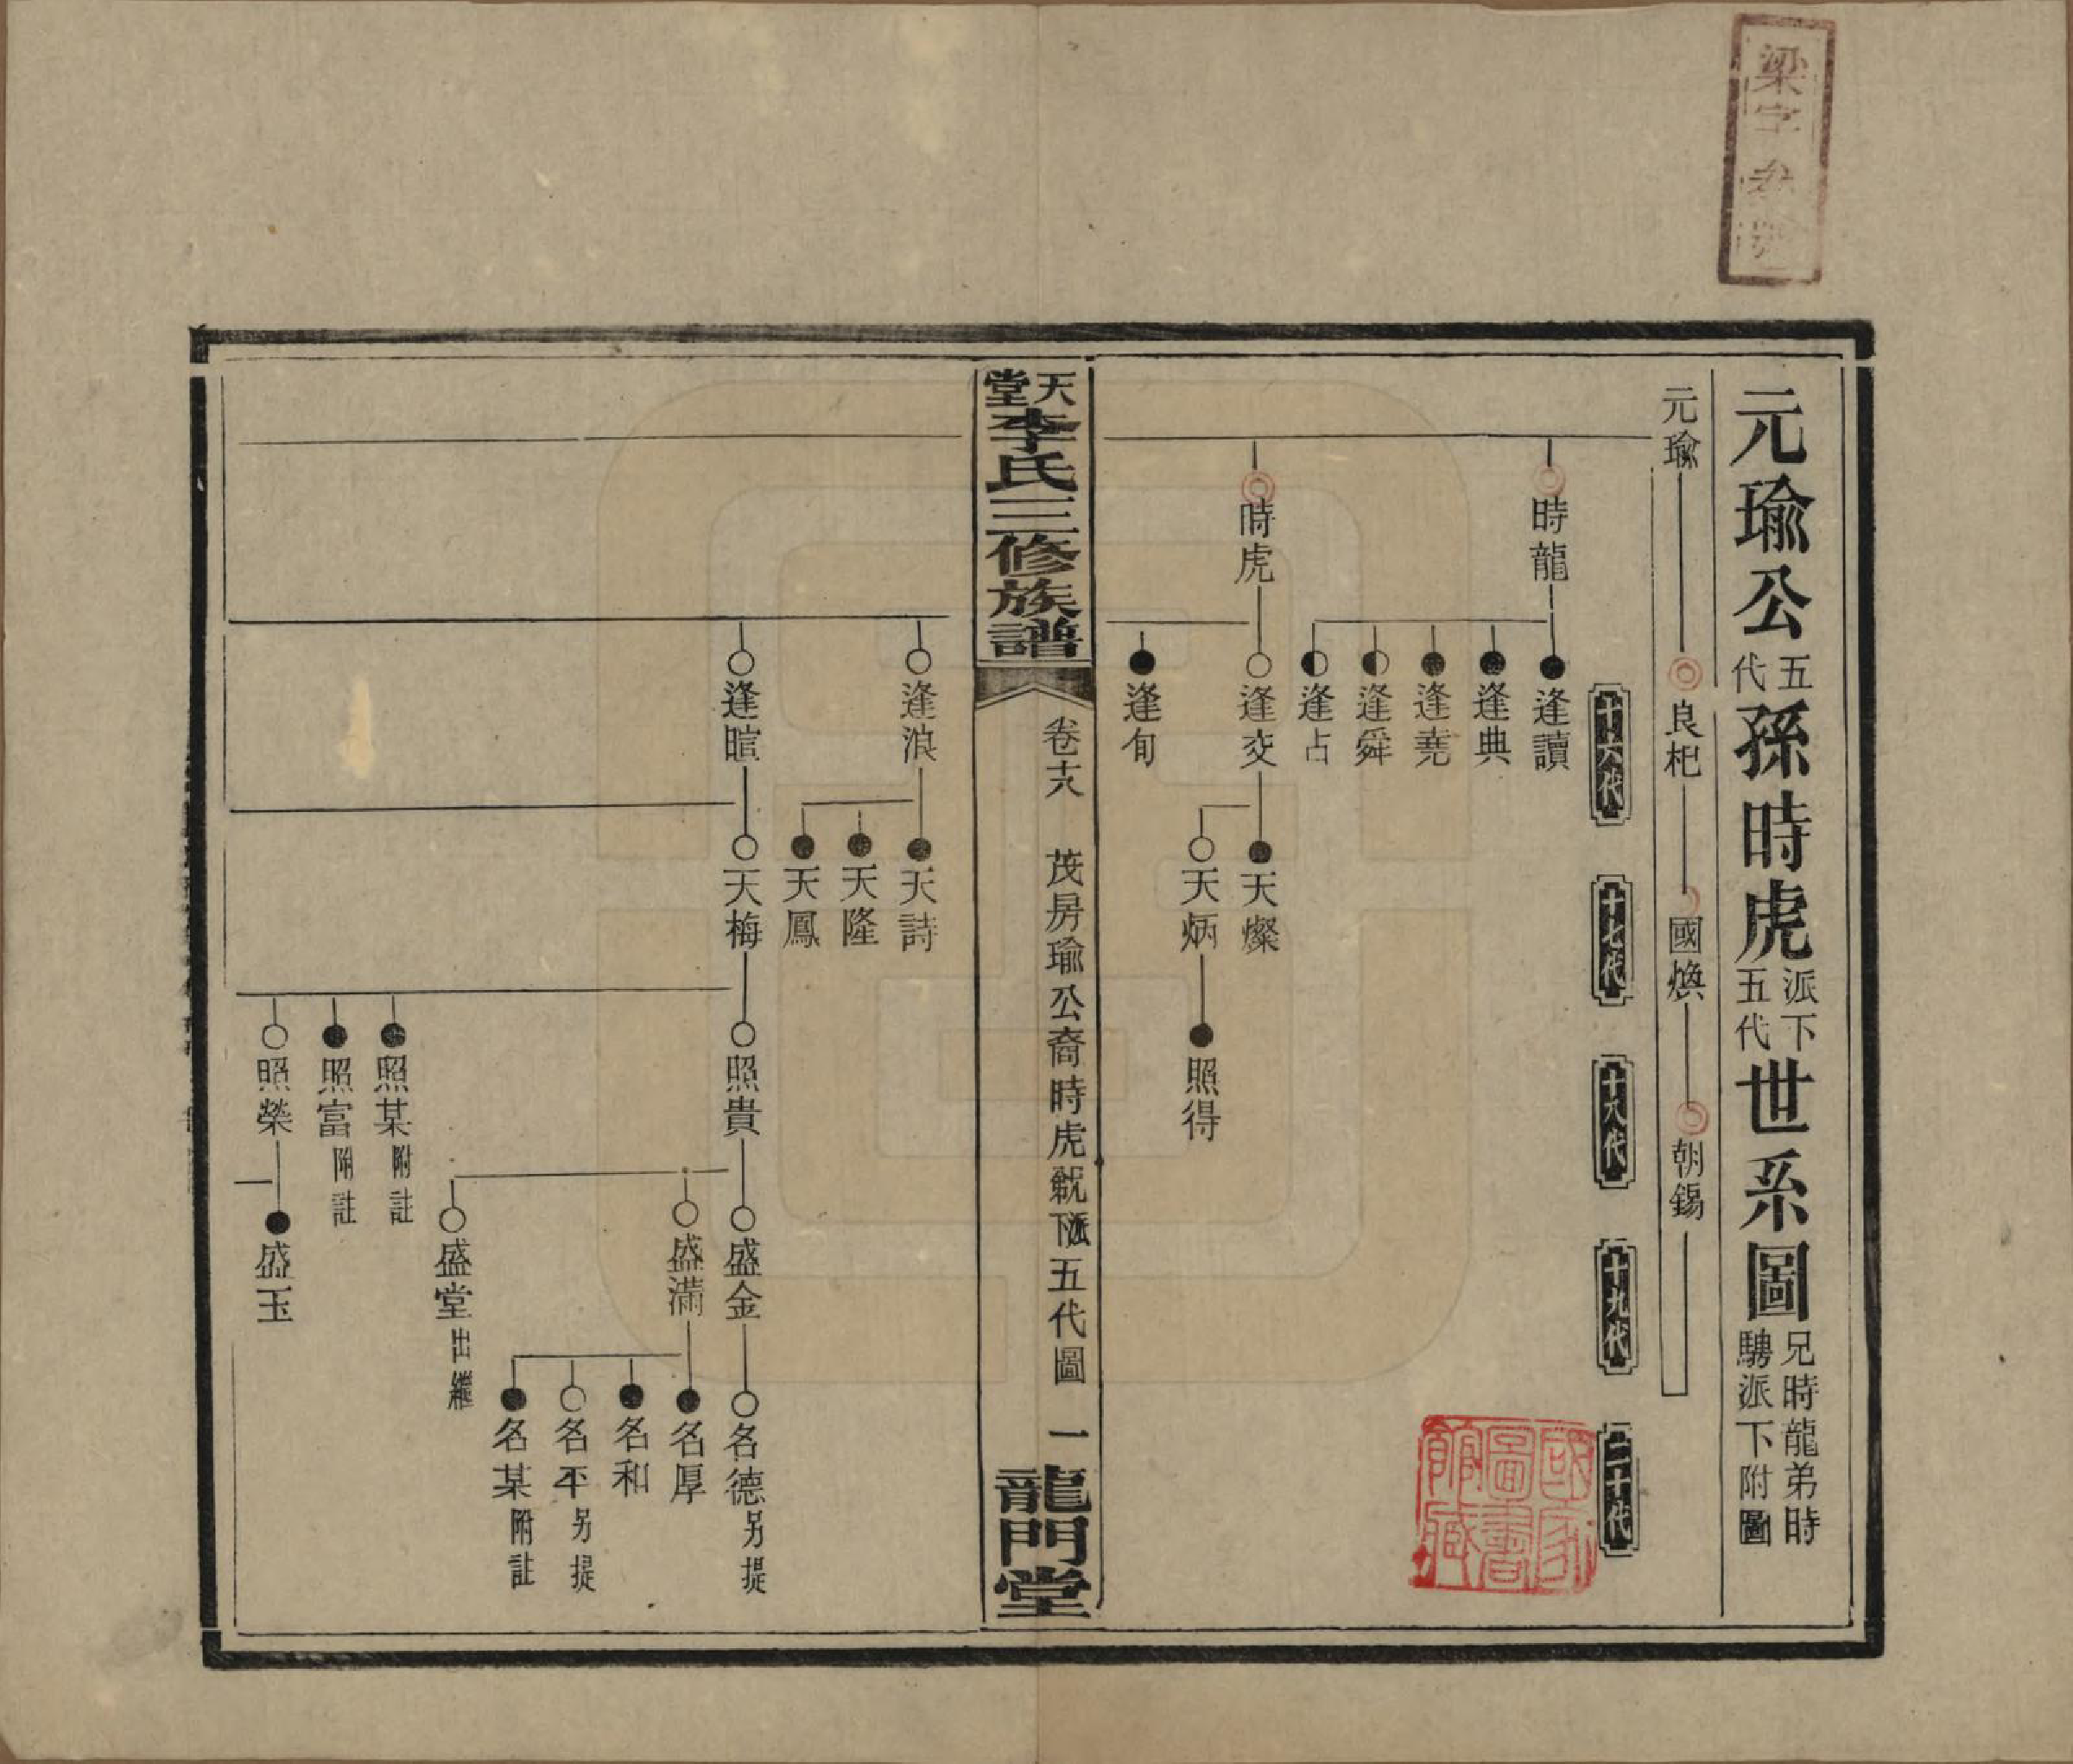 梁字
元瑜公五代孫時虎派下五代世系圖兄時龍弟時騁派下附圖
元瑜 良杞 國煥 朝錫
十六代 十七代 十八代 十九代 二十代
時龍 逢讀
逢典
逢堯
逢舜
逢占
時虎 逢交 天燦
天炳 照得
逢旬
國家圖書館藏
天堂李氏三修族譜 卷十八 茂房瑜公裔時虎 派下五代圖 一 龍門堂
逢浪 天詩
天隆
天鳳
逢暄 天梅 照貴 盛金 名德另提
盛滿 名厚
名和
名平另提
名某附註
盛堂出繼
照某附註
照富附註
照榮 盛玉